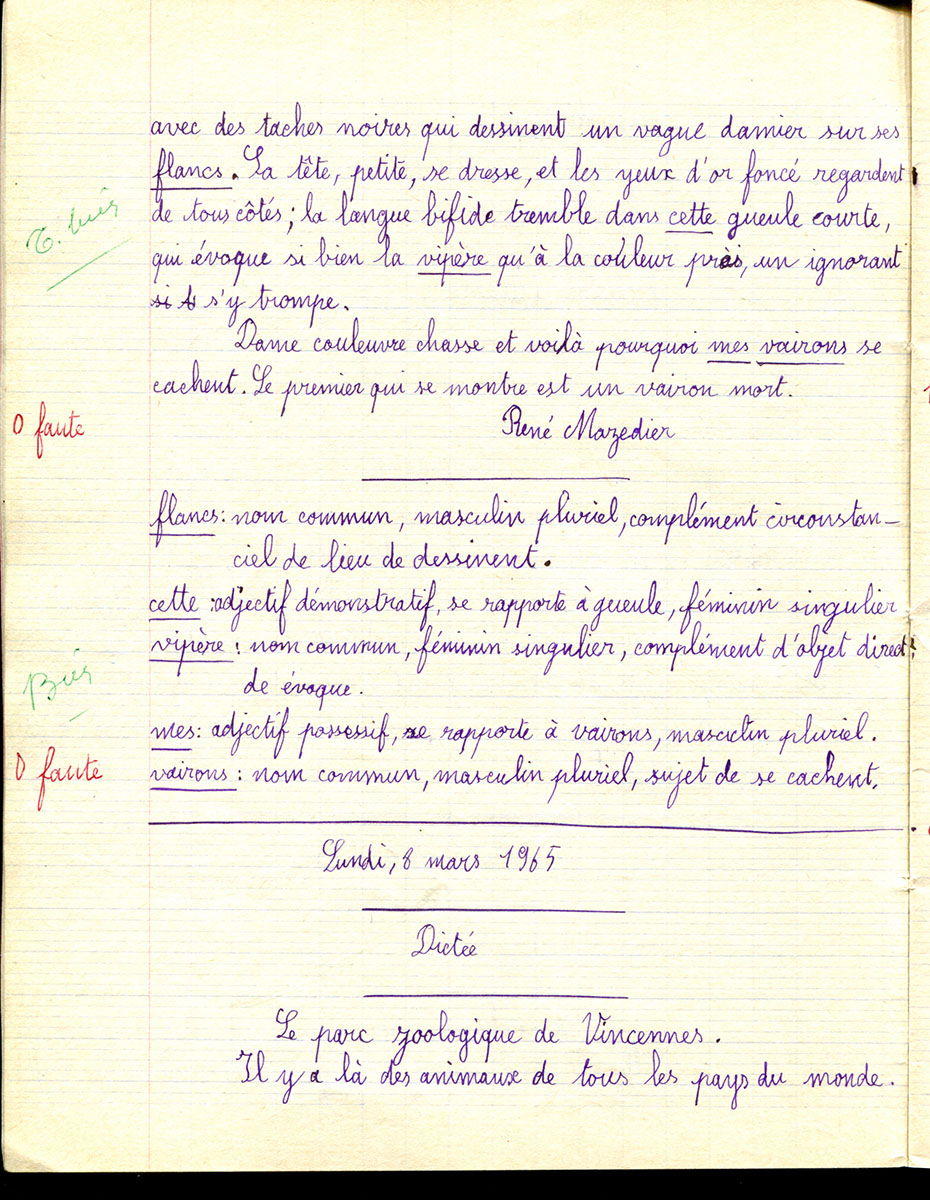 avec des taches noires qui dessinent un vague damier sur ses
flancs. La tête, petite, se dresse, et les yeux d'or foncé regardent
de tous côtés ; la langue bifide tremble dans cette gueule courte,
T. bien
qui évoque si bien la vipère qu'à la couleur près, un ignorant
s'y trompe.
Dame couleuvre chasse et voilà pourquoi mes vairons se
cachent. Le premier qui se montre est un vairon mort.
0 faute
René Mazedier
flancs : nom commun, masculin pluriel, complément circonstan-
ciel de lieu de dessinent.
cette : adjectif démonstratif, se rapporte à gueule, féminin singulier
vipère : nom commun, féminin singulier, complément d'objet direct
Bien
de évoque.
mes : adjectif possessif, se rapporte à vairons, masculin pluriel.
0 faute
vairons : nom commun, masculin pluriel, sujet de se cachent.
Lundi, 8 mars 1965
Dictée
Le parc zoologique de Vincennes.
Il y a là des animaux de tous les pays du monde.